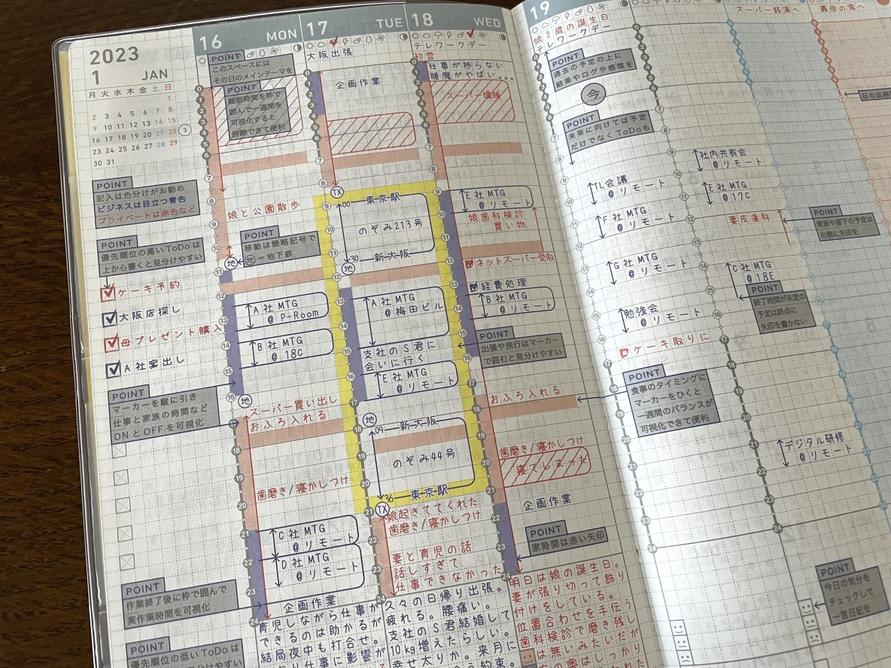 2023
1 JAN
月 火 水 木 金 土 日
1
2 3 4 5 6 7 8
9 10 11 12 13 14 15
16 17 18 19 20 21 22
23 24 25 26 27 28 29
30 31
POINT
記入は色分けがお勧め
ビジネスは目立つ青色
プライベートは赤色など
POINT
優先順位の高いToDoは
上から書くと見分けやすい
ケーキ予約
大阪店探し
母プレゼント購入
A社案出し
POINT
マーカーを縦に引き
仕事と家族の時間など
ONとOFFを可視化
POINT
作業終了後に枠で囲んで
実作業時間を可視化
POINT
優先順位の低いToDoは
16 MON
POINT
このスペースには
その日のメインテーマを
POINT
睡眠時間を枠で
囲んで一週間を
可視化すると
俯瞰できて便利
娘と公園散歩
POINT
移動は簡略記号で
地=地下鉄
地
A社MTG
@P-Room
B社MTG
@18C
地
スーパー買い出し
おふろ入れる
歯磨き/寝かしつけ
C社MTG
@リモート
D社MTG
@リモート
企画作業
育児しながら仕事が
できるのは助かるが
結局夜中も打合せ。
仕事に影響が
17 TUE
大阪出張
企画作業
TX
00 東京駅
のぞみ213号
30 新大阪
地
A社MTG
@梅田ビル
支社のS君に
会いに行く
E社MTG
@リモート
地
09 新大阪
のぞみ44号
36 東京駅
TX
娘起きててくれた
歯磨き/寝かしつけ
妻と育児の話
話しすぎて
仕事できなかった
久々の日帰り出張。
疲れる。腰痛い。
支社のS君結婚して
10kg増えたらしい。
幸せ太りか。来月に
18 WED
テレワークデー
初雪
仕事が捗らない
睡魔がやばい...
スーパー爆睡
E社MTG
@リモート
娘歯科検診
買い物
ネットスーパー受取
経費処理
B社MTG
@リモート
POINT
出張や旅行はマーカー
で囲むと見分けやすい
おふろ入れる
歯磨き/寝かしつけ
寝てしまった
企画作業
POINT
家時間は赤い矢印
明日は娘の誕生日。
妻が張り切って飾り
付けをしている。
位置合わせを手伝う
歯科検診で磨き残し
は無いみたいだが
19
娘2歳の誕生日
テレワークデー
POINT
過去の予定の上に
結果やログや感想を
今
POINT
未来に向けては予定
だけでなくToDoも
TL会議
@リモート
F社MTG
@リモート
G社MTG
@リモート
勉強会
@リモート
ケーキ取りに
POINT
食事のタイミングに
マーカーをひくと
一週間のバランスが
可視化できて便利
社内共有会
@リモート
E社MTG
@17C
妻皮膚科
C社MTG
@18E
POINT
終了時間が未定の
予定は終点に
矢印を書かない
デジタル研修
@リモート
スーパー銭湯へ
義母の家へ
POINT
家族や部下の予定は
右側に矢印を
POINT
今日の気分を
チェックして
一言日記を